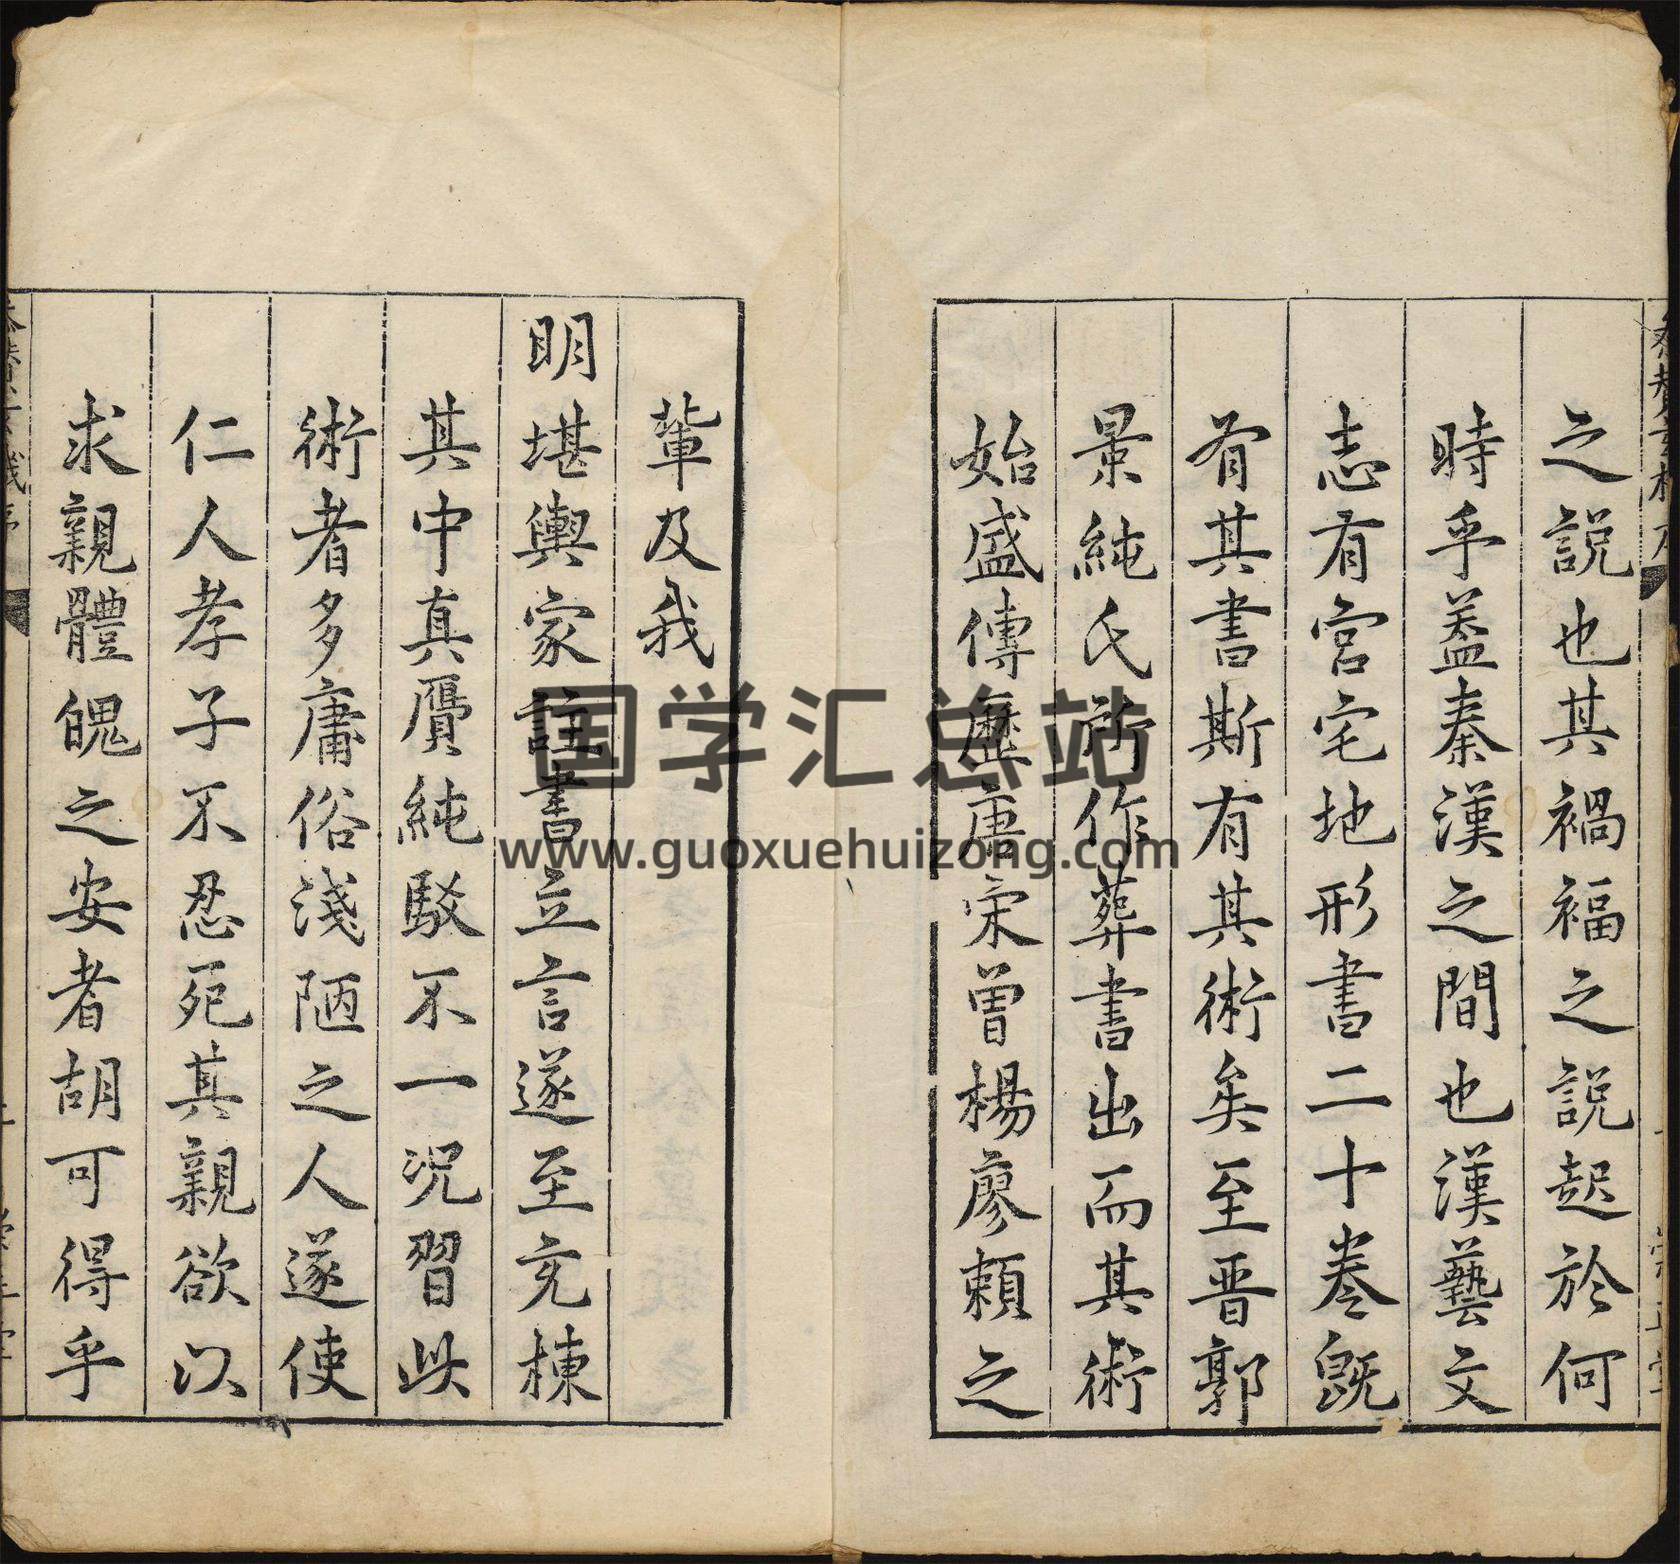 之說也其禍福之說起於何
時乎葢秦漢之間也漢藝文
志有宮宅地形書二十卷旣
有其書斯有其術矣至晉郭
景純氏所作葬書出而其術
始盛傳歷唐宋曾楊廖賴之
輩及我
明堪輿家註書立言遂至充棟
其中真贋純駁不一況習此
術者多庸俗淺陋之人遂使
仁人孝子不忍死其親欲以
求親體魄之安者胡可得乎
国学汇总站
www.guoxuehuizong.com